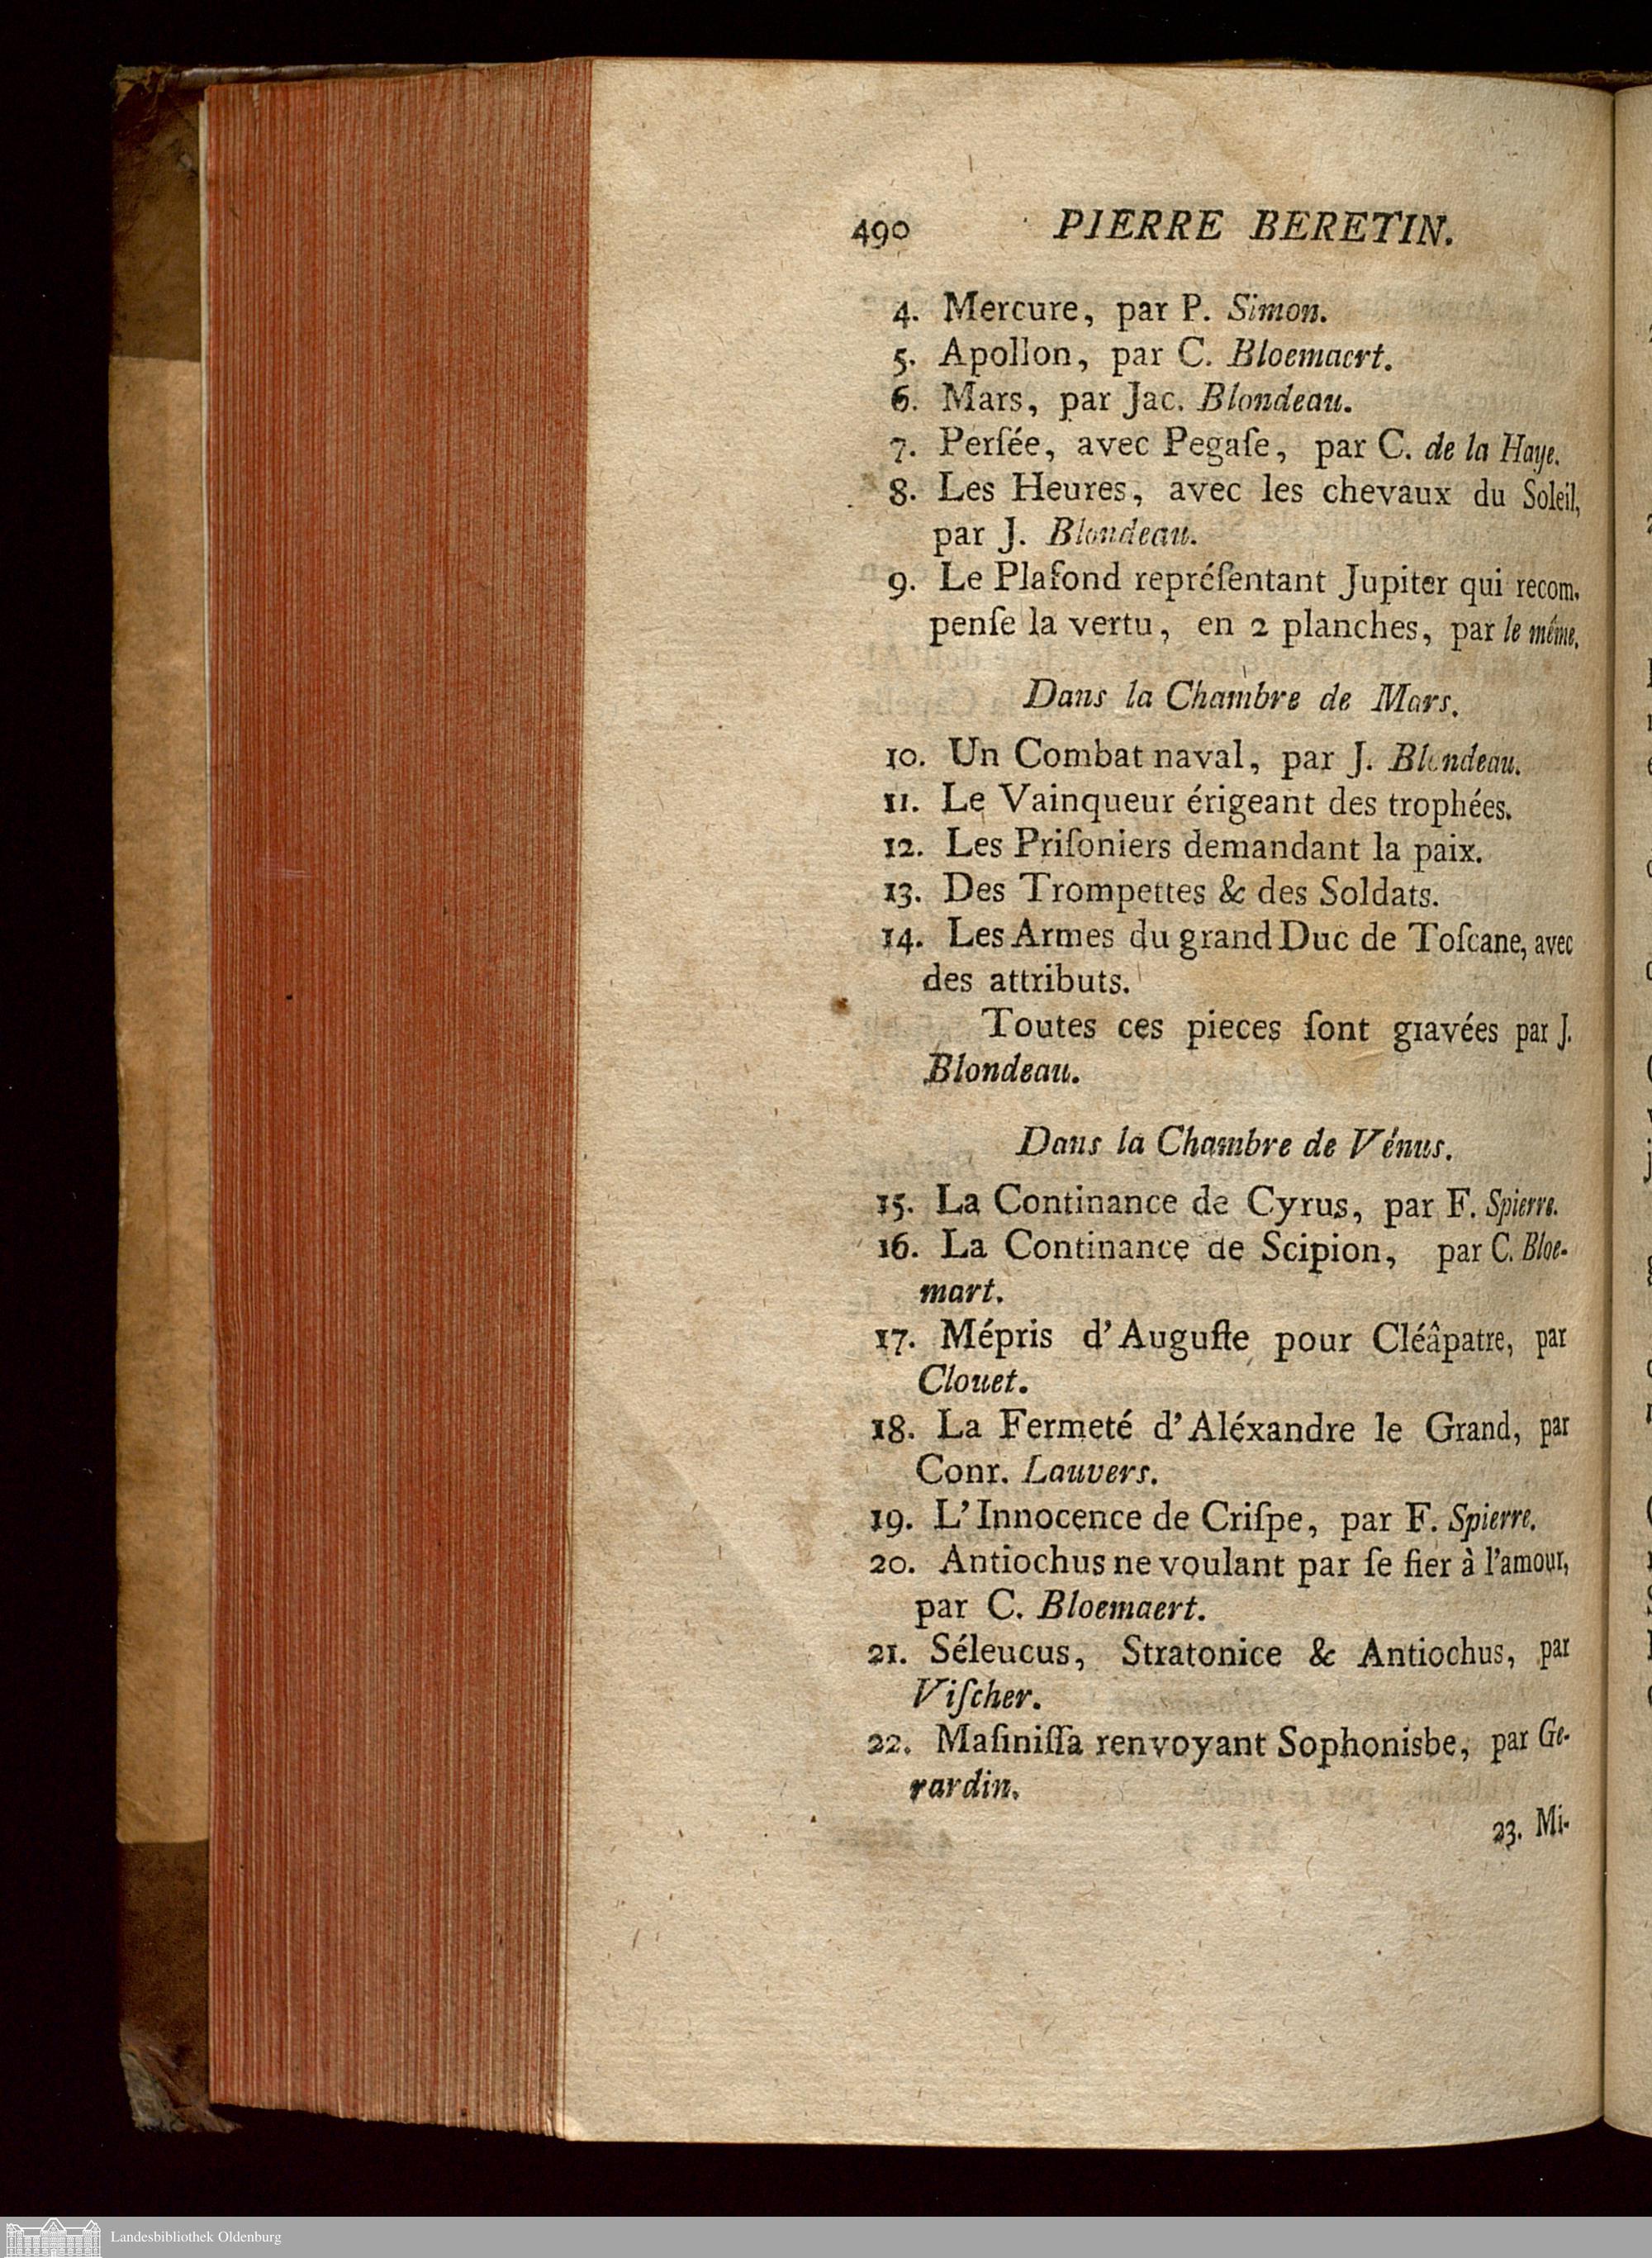 490 PIERRE BERETIN.
4. Mercure, par P. Simon.
5. Apollon, par C. Bloemaert.
6. Mars, par Jac. Blondeau.
7. Perſée, avec Pegaſe, par C. de la Haye.
8. Les Heures, avec les chevaux du Soleil,
par J. Blondeau.
9. Le Plafond repréſentant Jupiter qui recom-
penſe la vertu, en 2 planches, par le même.
Dans la Chambre de Mars.
10. Un Combat naval, par J. Blondeau.
11. Le Vainqueur érigeant des trophées.
12. Les Priſoniers demandant la paix.
13. Des Trompettes & des Soldats.
14. Les Armes du grand Duc de Toſcane, avec
des attributs.
Toutes ces pieces ſont gravées par J.
Blondeau.
Dans la Chambre de Vénus.
15. La Continance de Cyrus, par F. Spierre.
16. La Continance de Scipion, par C. Bloe-
mart.
17. Mépris d'Auguſte pour Cléâpatre, par
Clouet.
18. La Fermeté d'Aléxandre le Grand, par
Conr. Lauvers.
19. L'Innocence de Criſpe, par F. Spierre.
20. Antiochus ne voulant par ſe fier à l'amour,
par C. Bloemaert.
21. Séleucus, Stratonice & Antiochus, par
Viſcher.
22. Maſiniſſa renvoyant Sophonisbe, par Ge-
rardin.
23. Mi-
Landesbibliothek Oldenburg